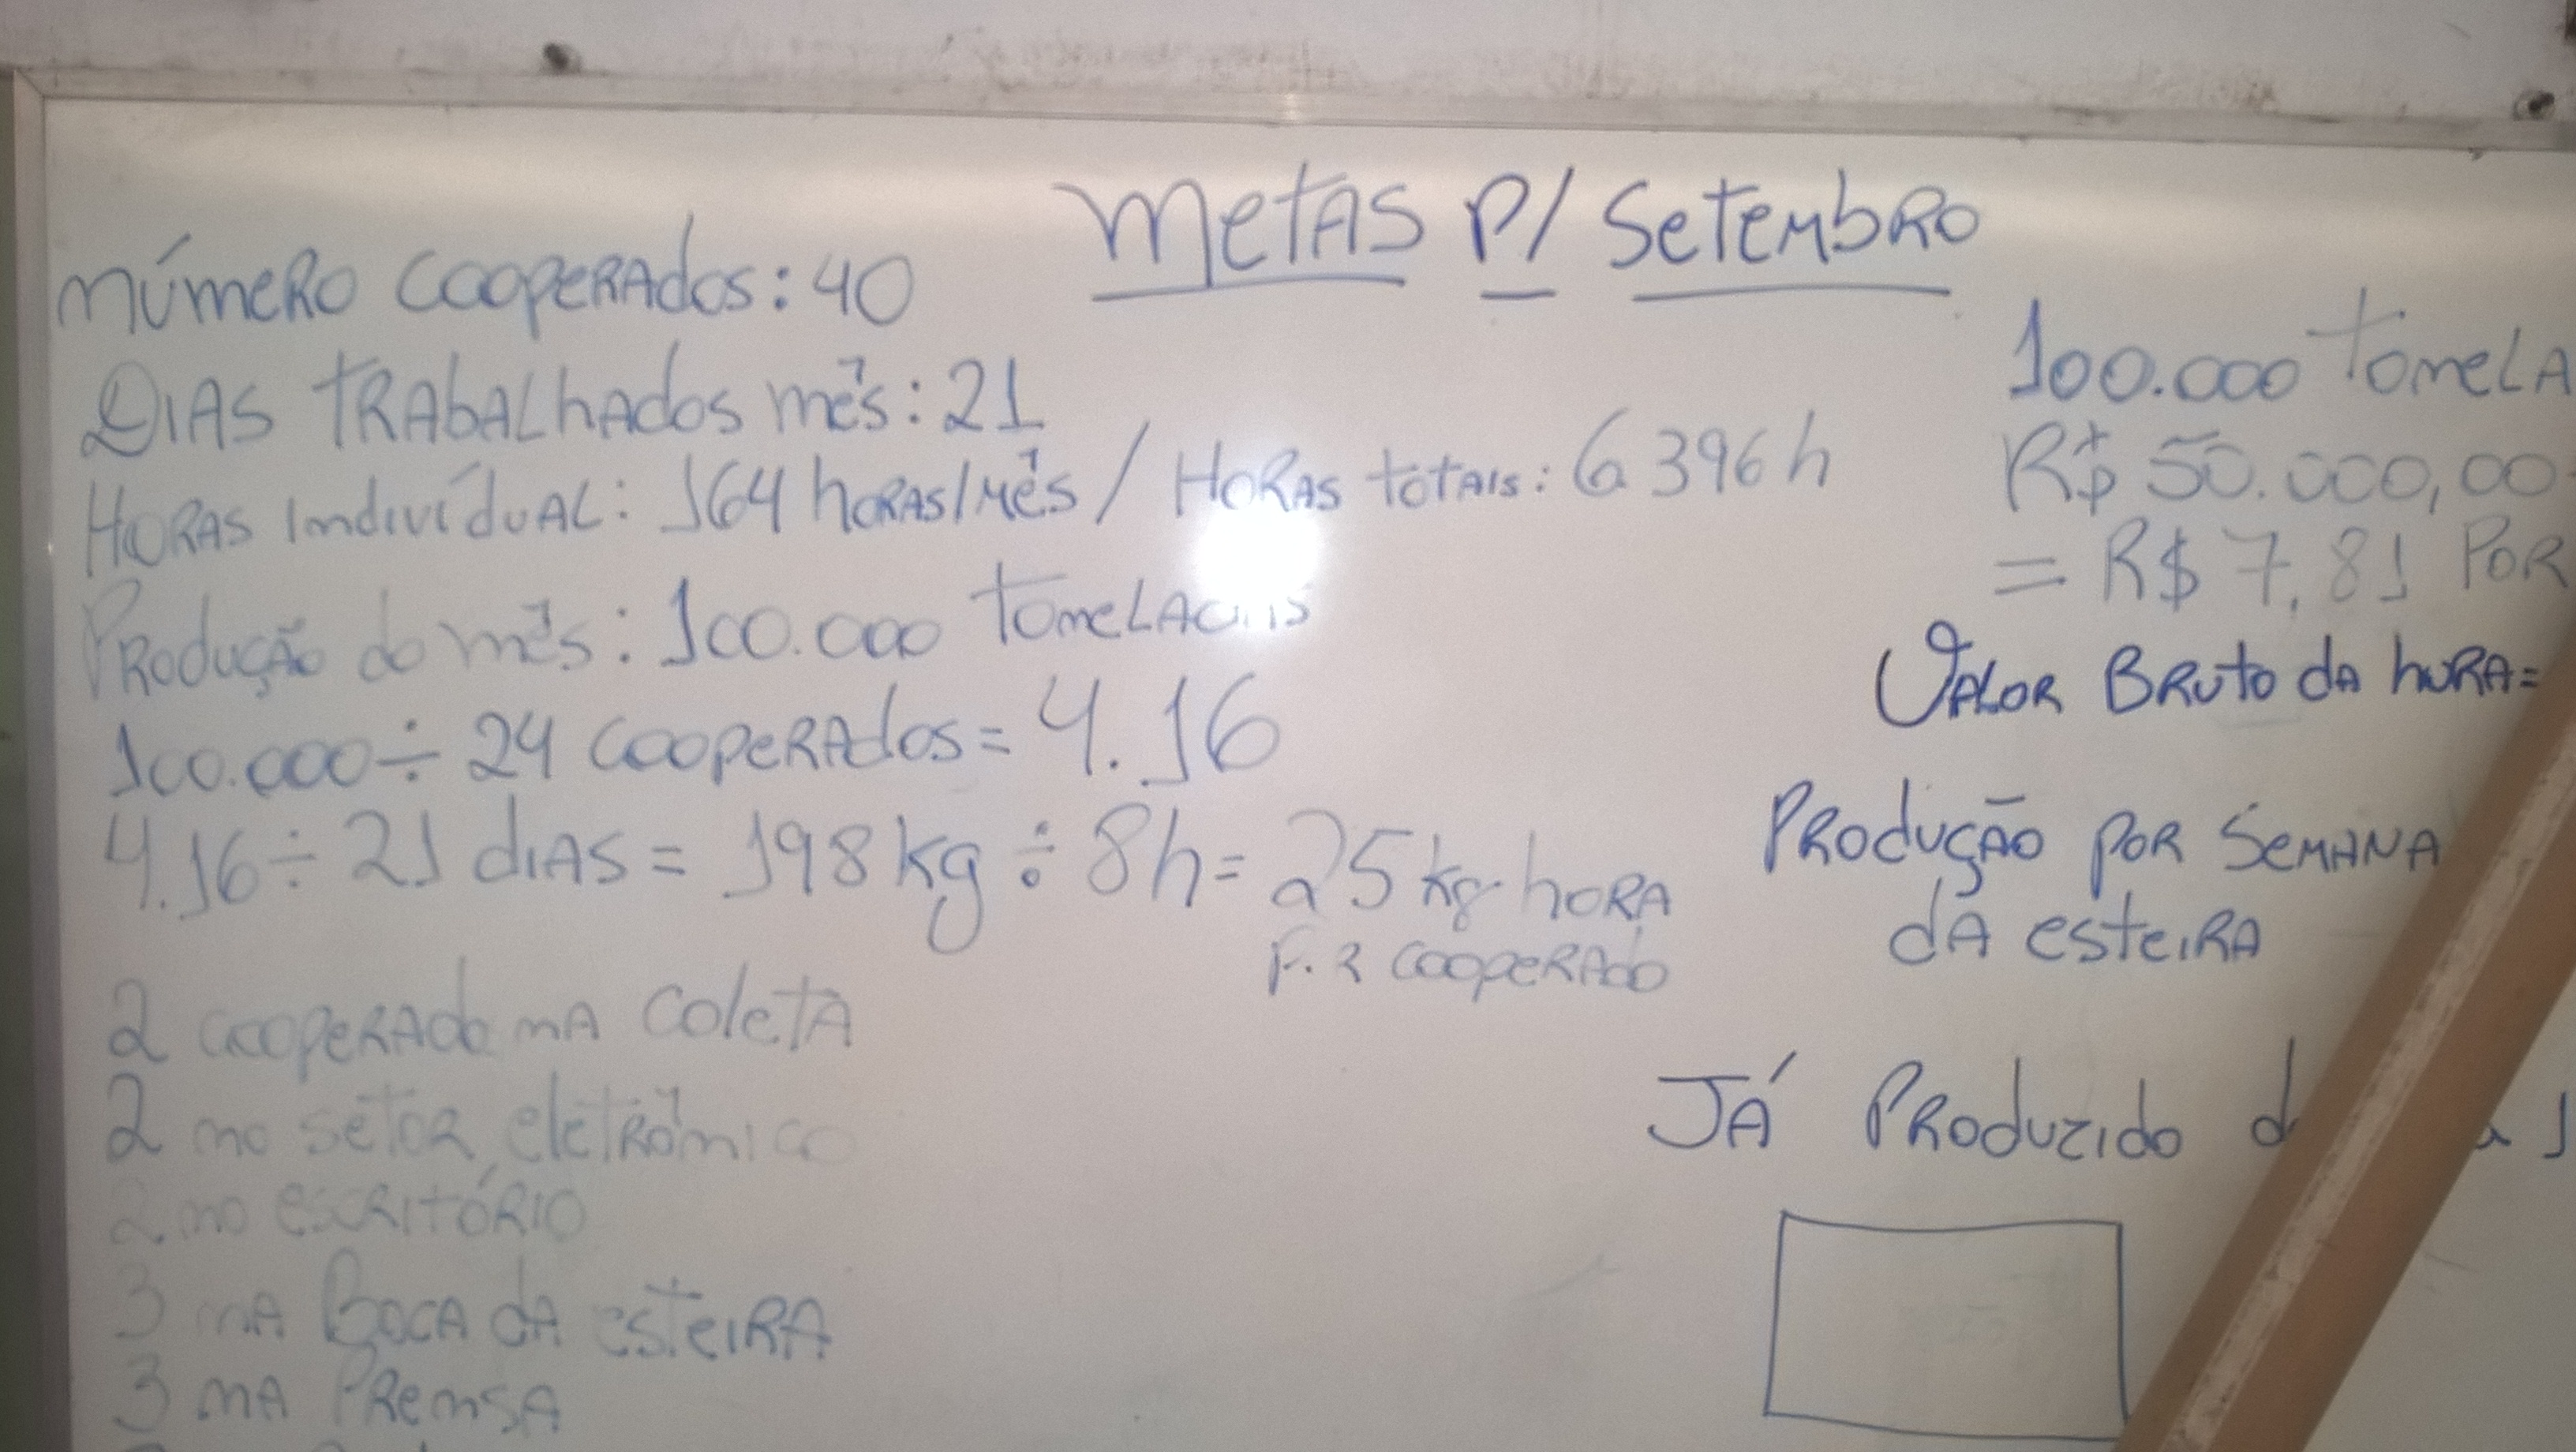 Metas P/ Setembro
Número cooperados: 40
Dias trabalhados mês: 21
Horas indivídual: 164 horas/mês / Horas totais: 6396h
Produção do mês: 100.000 toneladas
100.000 ÷ 24 cooperados = 4.16
4.16 ÷ 21 dias = 198 kg ÷ 8h = 25 kg hora
cooperado
2 cooperado na coleta
2 no setor eletrônico
2 no escritório
3 na Boca da esteira
3 na Prensa
100.000 tonela
R$ 50.000,00
= R$ 7,81 Por
Valor Bruto da hora =
Produção por Semana
da esteira
Já Produzido